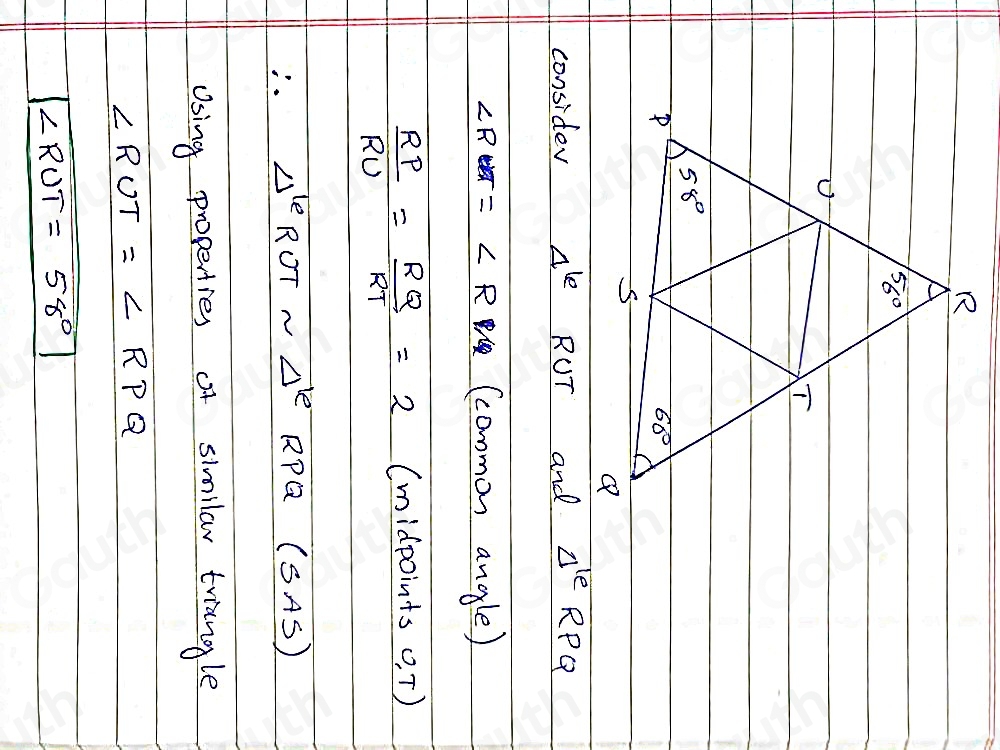 R
56°
U
T
P
58°
S
68°
Q
consider Δle RUT and Δle RPQ
∠R = ∠R (common angle)
RP/RU = RQ/RT = 2 (midpoints U,T)
∴ Δle RUT ~ Δle RPQ (SAS)
Using properties of similar triangle
∠RUT = ∠RPQ
∠RUT = 58°
Gauth